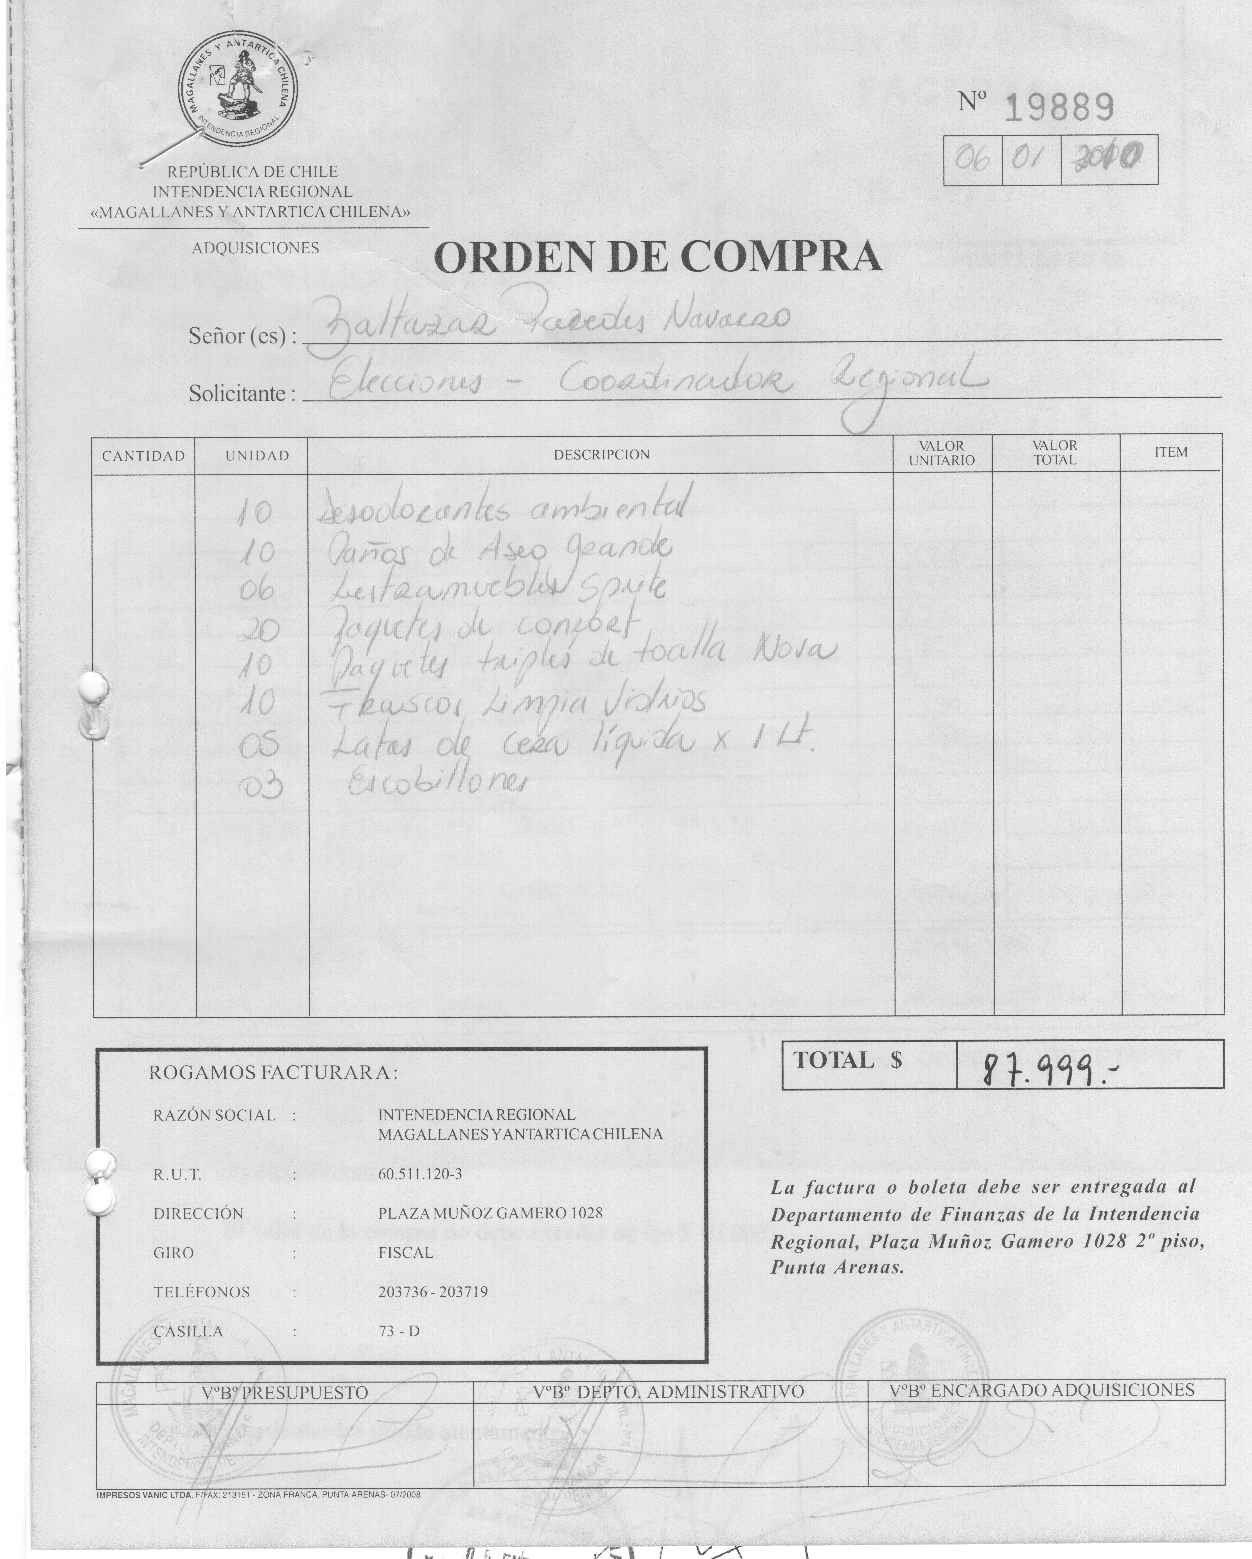 MAGALLANES Y ANTARTICA CHILENA
INTENDENCIA REGIONAL
Nº 19889
06 01 2010
REPÚBLICA DE CHILE
INTENDENCIA REGIONAL
«MAGALLANES Y ANTARTICA CHILENA»
ADQUISICIONES
ORDEN DE COMPRA
Señor (es) : Baltazar Paredes Navarro
Solicitante : Elecciones - Coordinador Regional
CANTIDAD UNIDAD DESCRIPCION VALOR UNITARIO VALOR TOTAL ITEM
10 Desodorantes ambiental
10 Paños de Aseo grande
06 Lustramuebles
20 Paquetes de confort
10 Paquetes triples de toalla Nova
10 Frascos Limpia Vidrios
05 Latas de cera líquida x 1 Lt.
03 Escobillones
TOTAL $ 87.999.-
ROGAMOS FACTURAR A :
RAZÓN SOCIAL : INTENEDENCIA REGIONAL
MAGALLANES Y ANTARTICA CHILENA
R.U.T. : 60.511.120-3
DIRECCIÓN : PLAZA MUÑOZ GAMERO 1028
GIRO : FISCAL
TELÉFONOS : 203736 - 203719
CASILLA : 73 - D
La factura o boleta debe ser entregada al
Departamento de Finanzas de la Intendencia
Regional, Plaza Muñoz Gamero 1028 2º piso,
Punta Arenas.
VºBº PRESUPUESTO VºBº DEPTO. ADMINISTRATIVO VºBº ENCARGADO ADQUISICIONES
IMPRESOS VANIC LTDA. F/FAX: 213151 - ZONA FRANCA, PUNTA ARENAS- 07/2008